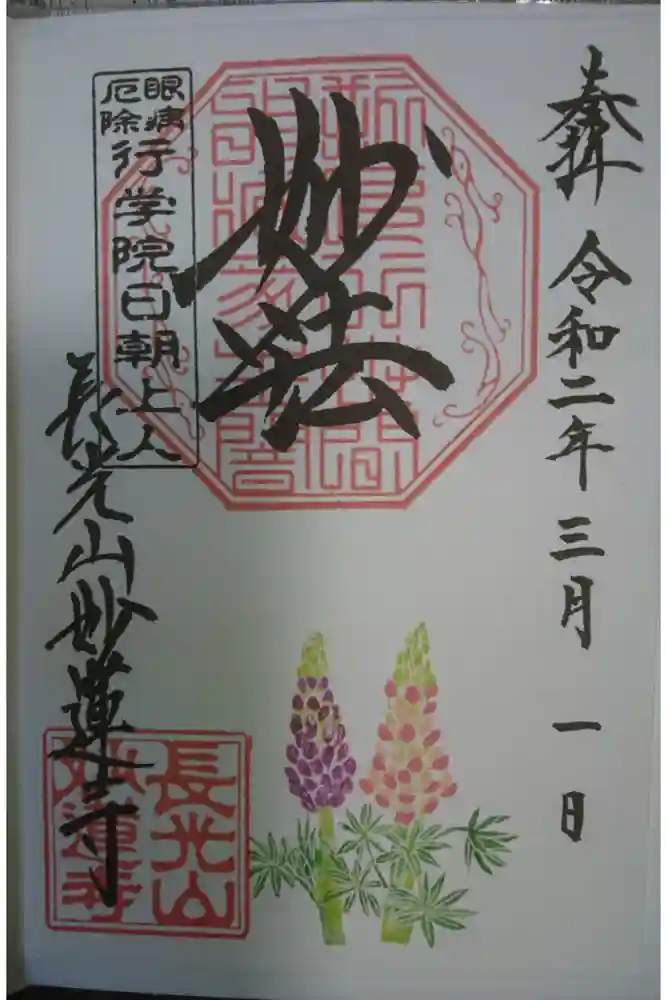 奉拝 令和二年三月一日
妙法
眼病
厄除
行学院日朝上人
長光山妙蓮寺
長光山
妙蓮寺